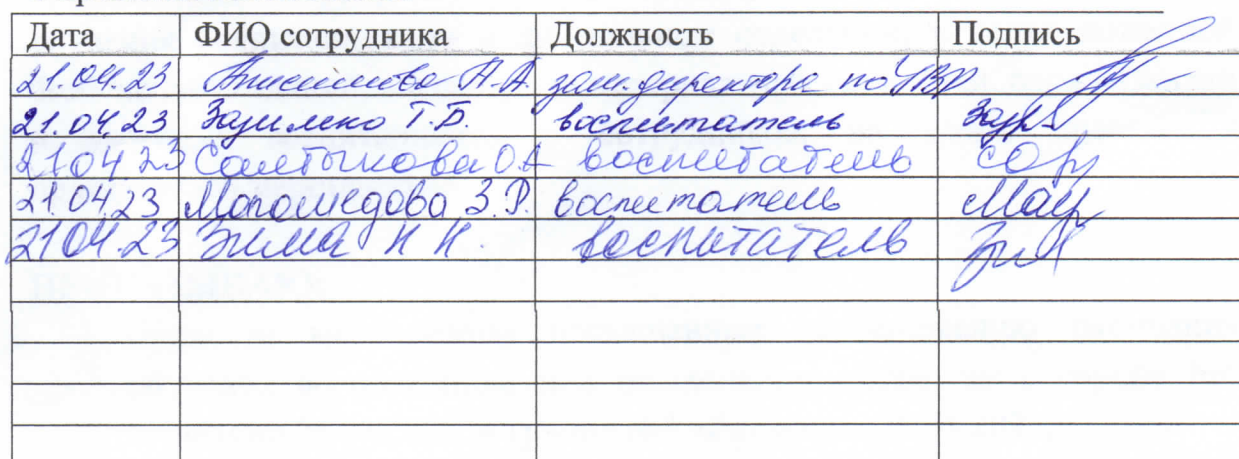 Дата ФИО сотрудника Должность Подпись
21.04.23 Анисимова Н.А. зам. директора по УВР
21.04.23 воспитатель
21.04.23 Салтыкова О.А воспитатель
21.04.23 Магомедова З.Р. воспитатель
21.04.23 Зима Н Н. воспитатель